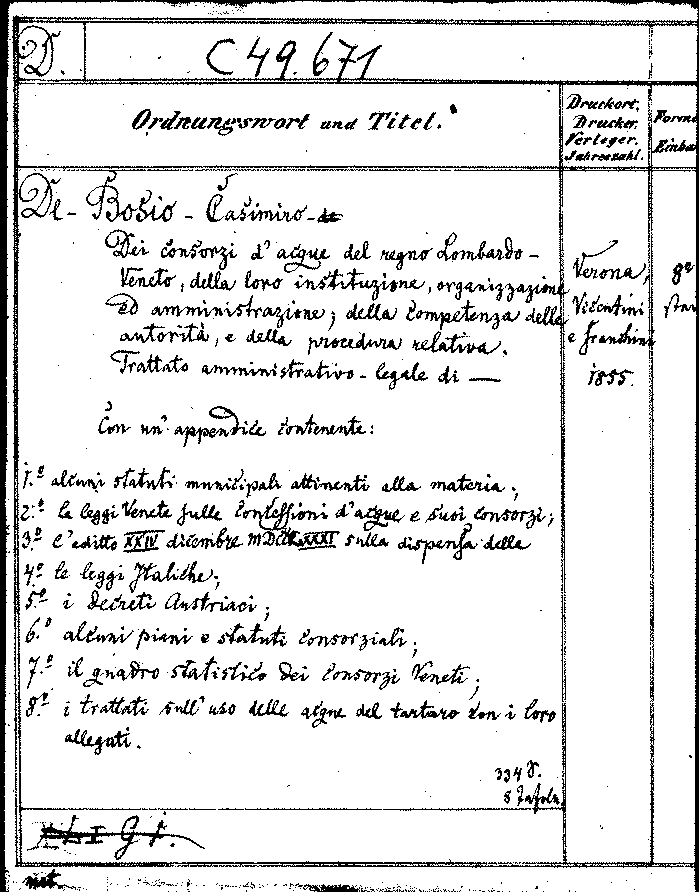 D.
C 49.671
Ordnungswort und Titel.
Druckort,
Drucker,
Verleger,
Jahrszahl.
De-Bosio-Casimiro-de
Dei consorzi d'acque del regno Lombardo-
Veneto, della loro instituzione, organizzazione
ed amministrazione; della competenza delle
autorità, e della procedura relativa.
Trattato amministrativo-legale di —
Verona,
Vicentini
e Franchini
1855.
8º
Con un'appendice contenente:
1.º alcuni statuti municipali attinenti alla materia;
2.º la leggi Venete sulle Concessioni d'acque e suoi consorzi;
3.º l'editto XXIV dicembre sulla dispensa della
4.º le leggi Italiche;
5.º i decreti Austriaci;
6.º alcuni piani e statuti consorziali;
7.º il quadro statistico dei Consorzi Veneti;
8.º i trattati sull'uso delle acque del tartaro con i loro
allegati.
334 S.
8 Tafeln.